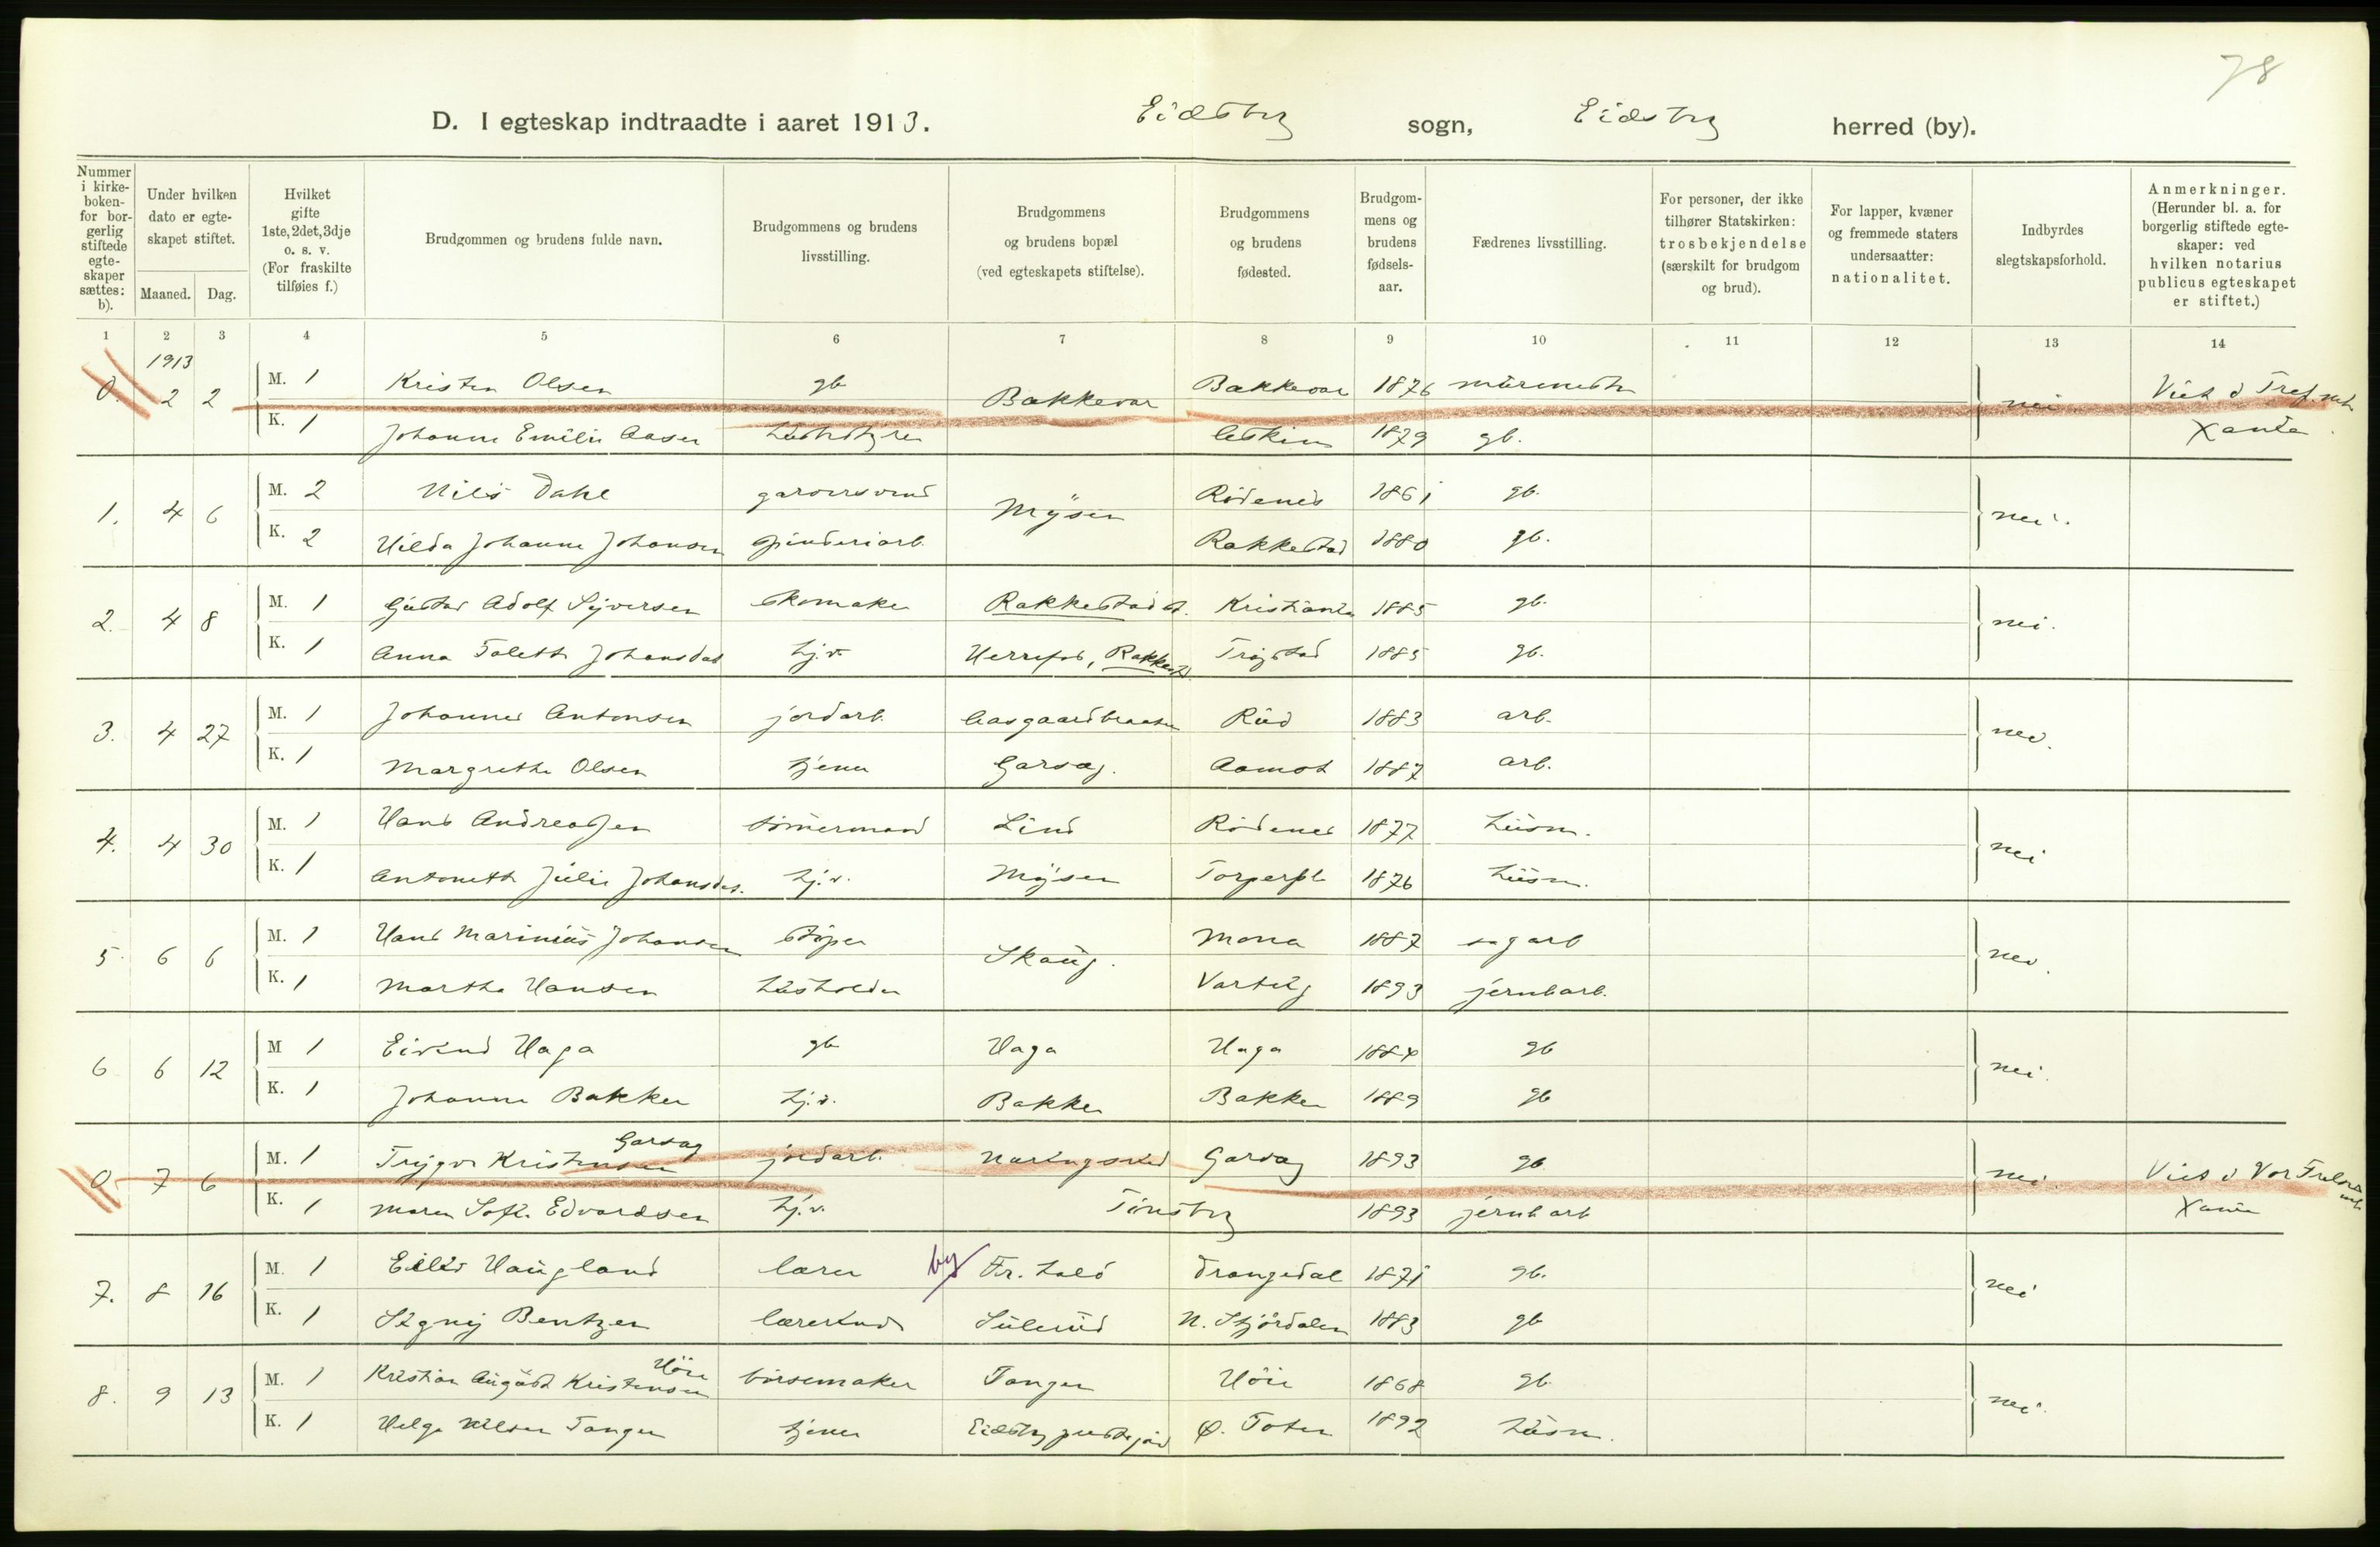 78
D. I egteskap indtraadte i aaret 1913. Eidsbrg sogn, Eidsbrg herred (by).
Nummer i kirke-boken- for bor-gerlig stiftede egte-skaper sættes: b).
Under hvilken dato er egte-skapet stiftet.
Maaned. Dag.
Hvilket gifte 1ste, 2det, 3dje o. s. v. (For fraskilte tilføies f.)
Brudgommen og brudens fulde navn.
Brudgommens og brudens livsstilling.
Brudgommens og brudens bopæl (ved egteskapets stiftelse).
Brudgommens og brudens fødested.
Brudgom-mens og brudens fødsels-aar.
Fædrenes livsstilling.
For personer, der ikke tilhører Statskirken: trosbekjendelse (særskilt for brudgom og brud).
For lapper, kvæner og fremmede staters undersaatter: nationalitet.
Indbyrdes slegtskapsforhold.
Anmerkninger. (Herunder bl. a. for borgerlig stiftede egte-skaper: ved hvilken notarius publicus egteskapet er stiftet.)
1 2 3 4 5 6 7 8 9 10 11 12 13 14
1913
0. 2 2 M. 1 Kristen Olsen gb Bakkevar Bakkevar 1876 mürmester nei Viet i Tref. mk.
K. 1 Johanne Emilie Aasen husbestyrer Askim 1879 gb. Xania
1. 4 6 M. 2 Nils Dahl garversvend Mysen Rödenes 1861 gb. nei.
K. 2 Hilda Johanne Johansen spinderiarb. Rakkestad 1880 gb.
2. 4 8 M. 1 Güstav Adolf Syversen skomaker Rakkestad st. Kristiania 1885 gb. nei.
K. 1 Anna Talette Johansdat hj.v. Herrefos, Rakkest. Trøgstad 1885 gb.
3. 4 27 M. 1 Johannes Antonsen jordarb. Aasgaardbraaten Rüd 1883 arb. nei.
K. 1 Margrethe Olsen tjener Garsæg. Aamot 1887 arb.
4. 4 30 M. 1 Hans Andreassen tömmermand Lind Rödenes 1877 hüsm. nei
K. 1 Antonette Jülie Johansdat. hj.v. Mysen Torperpl. 1876 hüsm.
5 6 6 M. 1 Hans Marinius Johansen støper Skaug. Mona 1887 sagarb nei.
K. 1 Martha Hansen husholder Varteig 1893 jernbarb.
6 6 12 M 1 Eivind Haga gb Haga Haga 1884 gb nei.
K. 1 Johanne Bakken hj.v. Bakken Bakken 1889 gb
0 7 6 M. 1 Trygve Kristensen Garsæg jordarb. Garsæg 1893 gb nei. Viet i Vor Frelsers mk.
K. 1 Maren Sofie Edvardsen hj.v. Tönsbrg 1893 jernbarb Xania
7. 8 16 M. 1 Eiliv Haügland lærer by Fr. hald Drangedal 1871 gb. nei
K. 1 Signy Bentzen lærerinde Sülerüd N. Stjördalen 1883 gb
8. 9 13 M. 1 Kristian Aügüst Kristensen Höie börsemaker Tangen Höie 1868 gb. nei.
K. 1 Helga Nilsen Tangen tjener Eidsbrg prestegård Ø. Toten 1892 hüsm.